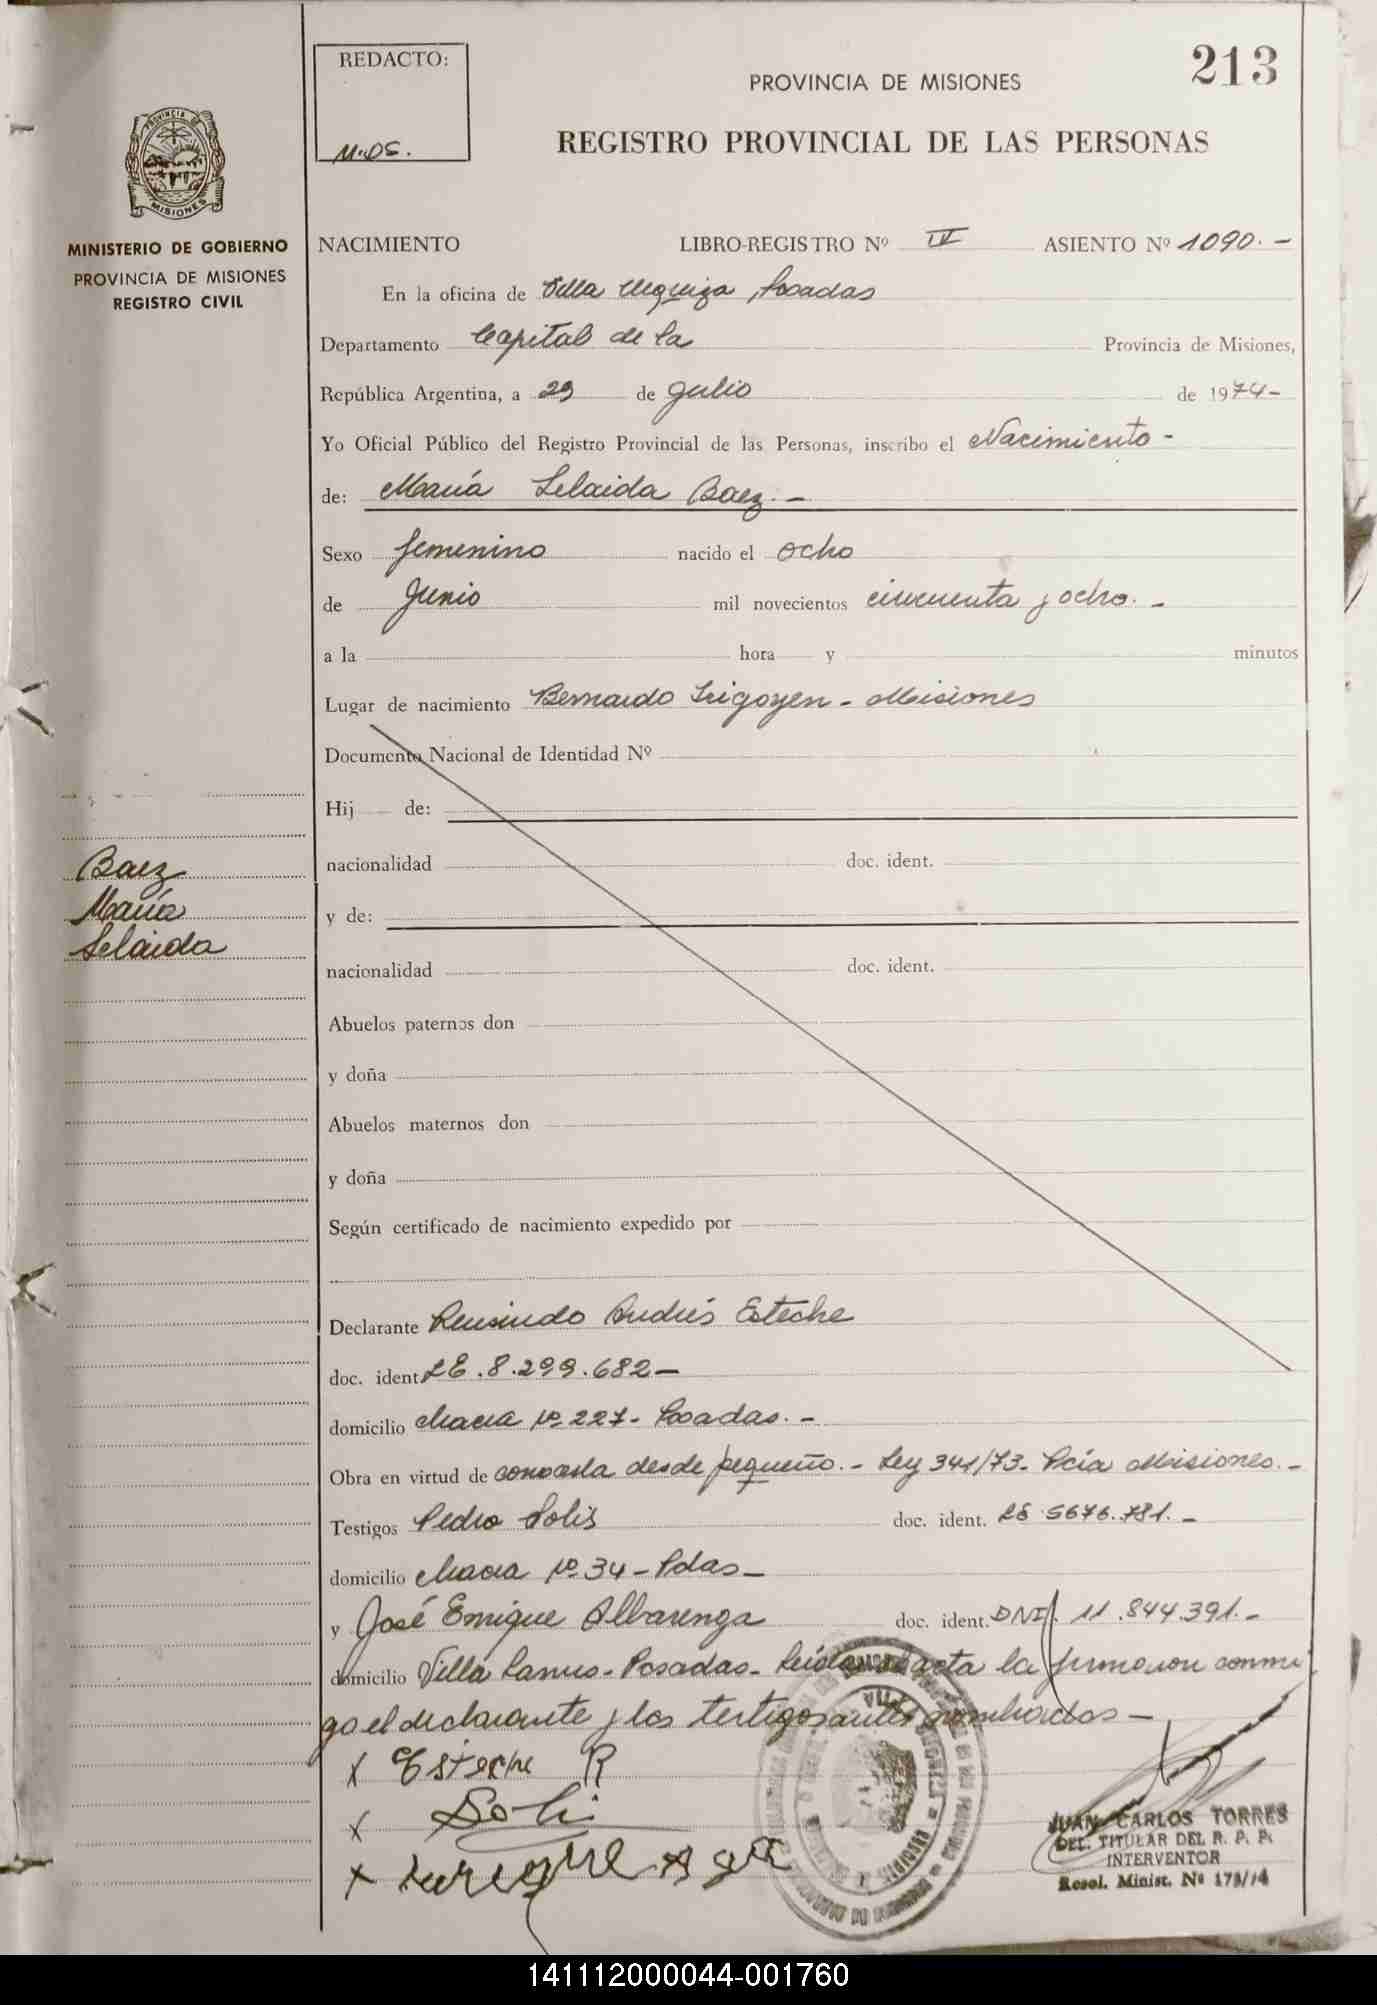 REDACTO:
213
PROVINCIA DE MISIONES
REGISTRO PROVINCIAL DE LAS PERSONAS
PROVINCIA DE
MISIONES
MINISTERIO DE GOBIERNO
PROVINCIA DE MISIONES
REGISTRO CIVIL
NACIMIENTO LIBRO-REGISTRO Nº IV ASIENTO Nº 1090.-
En la oficina de Villa Urquiza, Posadas
Departamento Capital de la Provincia de Misiones,
República Argentina, a 29 de Julio de 1974-
Yo Oficial Público del Registro Provincial de las Personas, inscribo el Nacimiento-
de: María Selaida Baez.-
Sexo femenino nacido el ocho
de Junio mil novecientos cincuenta y ocho.-
a la hora y minutos
Lugar de nacimiento Bernardo Irigoyen - Misiones
Documento Nacional de Identidad Nº
Hij de:
Baez
María
Selaida
nacionalidad doc. ident.
y de:
nacionalidad doc. ident.
Abuelos paternos don
y doña
Abuelos maternos don
y doña
Según certificado de nacimiento expedido por
Declarante Andrés Esteche
doc. ident LE.8.299.682-
domicilio Chacra Nº 227- Posadas.-
Obra en virtud de conocerla desde pequeño.- Ley 341/73- Pcia Misiones.-
Testigos Pedro Solis doc. ident. LE 5676.781.-
domicilio Chacra Nº 34- Pdas-
y José Enrique Albarenga doc. ident. DNI. 11.844.391.-
domicilio Villa Lanus- Posadas- Leída el acta la firmaron conmi
go el declarante y los testigos antes nombrados-
x Esteche R
x Soli
x
JUAN CARLOS TORRES
DEL. TITULAR DEL R. P. P.
INTERVENTOR
Resol. Minist. Nº 173/74
141112000044-001760